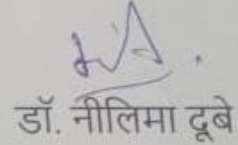 डॉ. नीलिमा दूबे